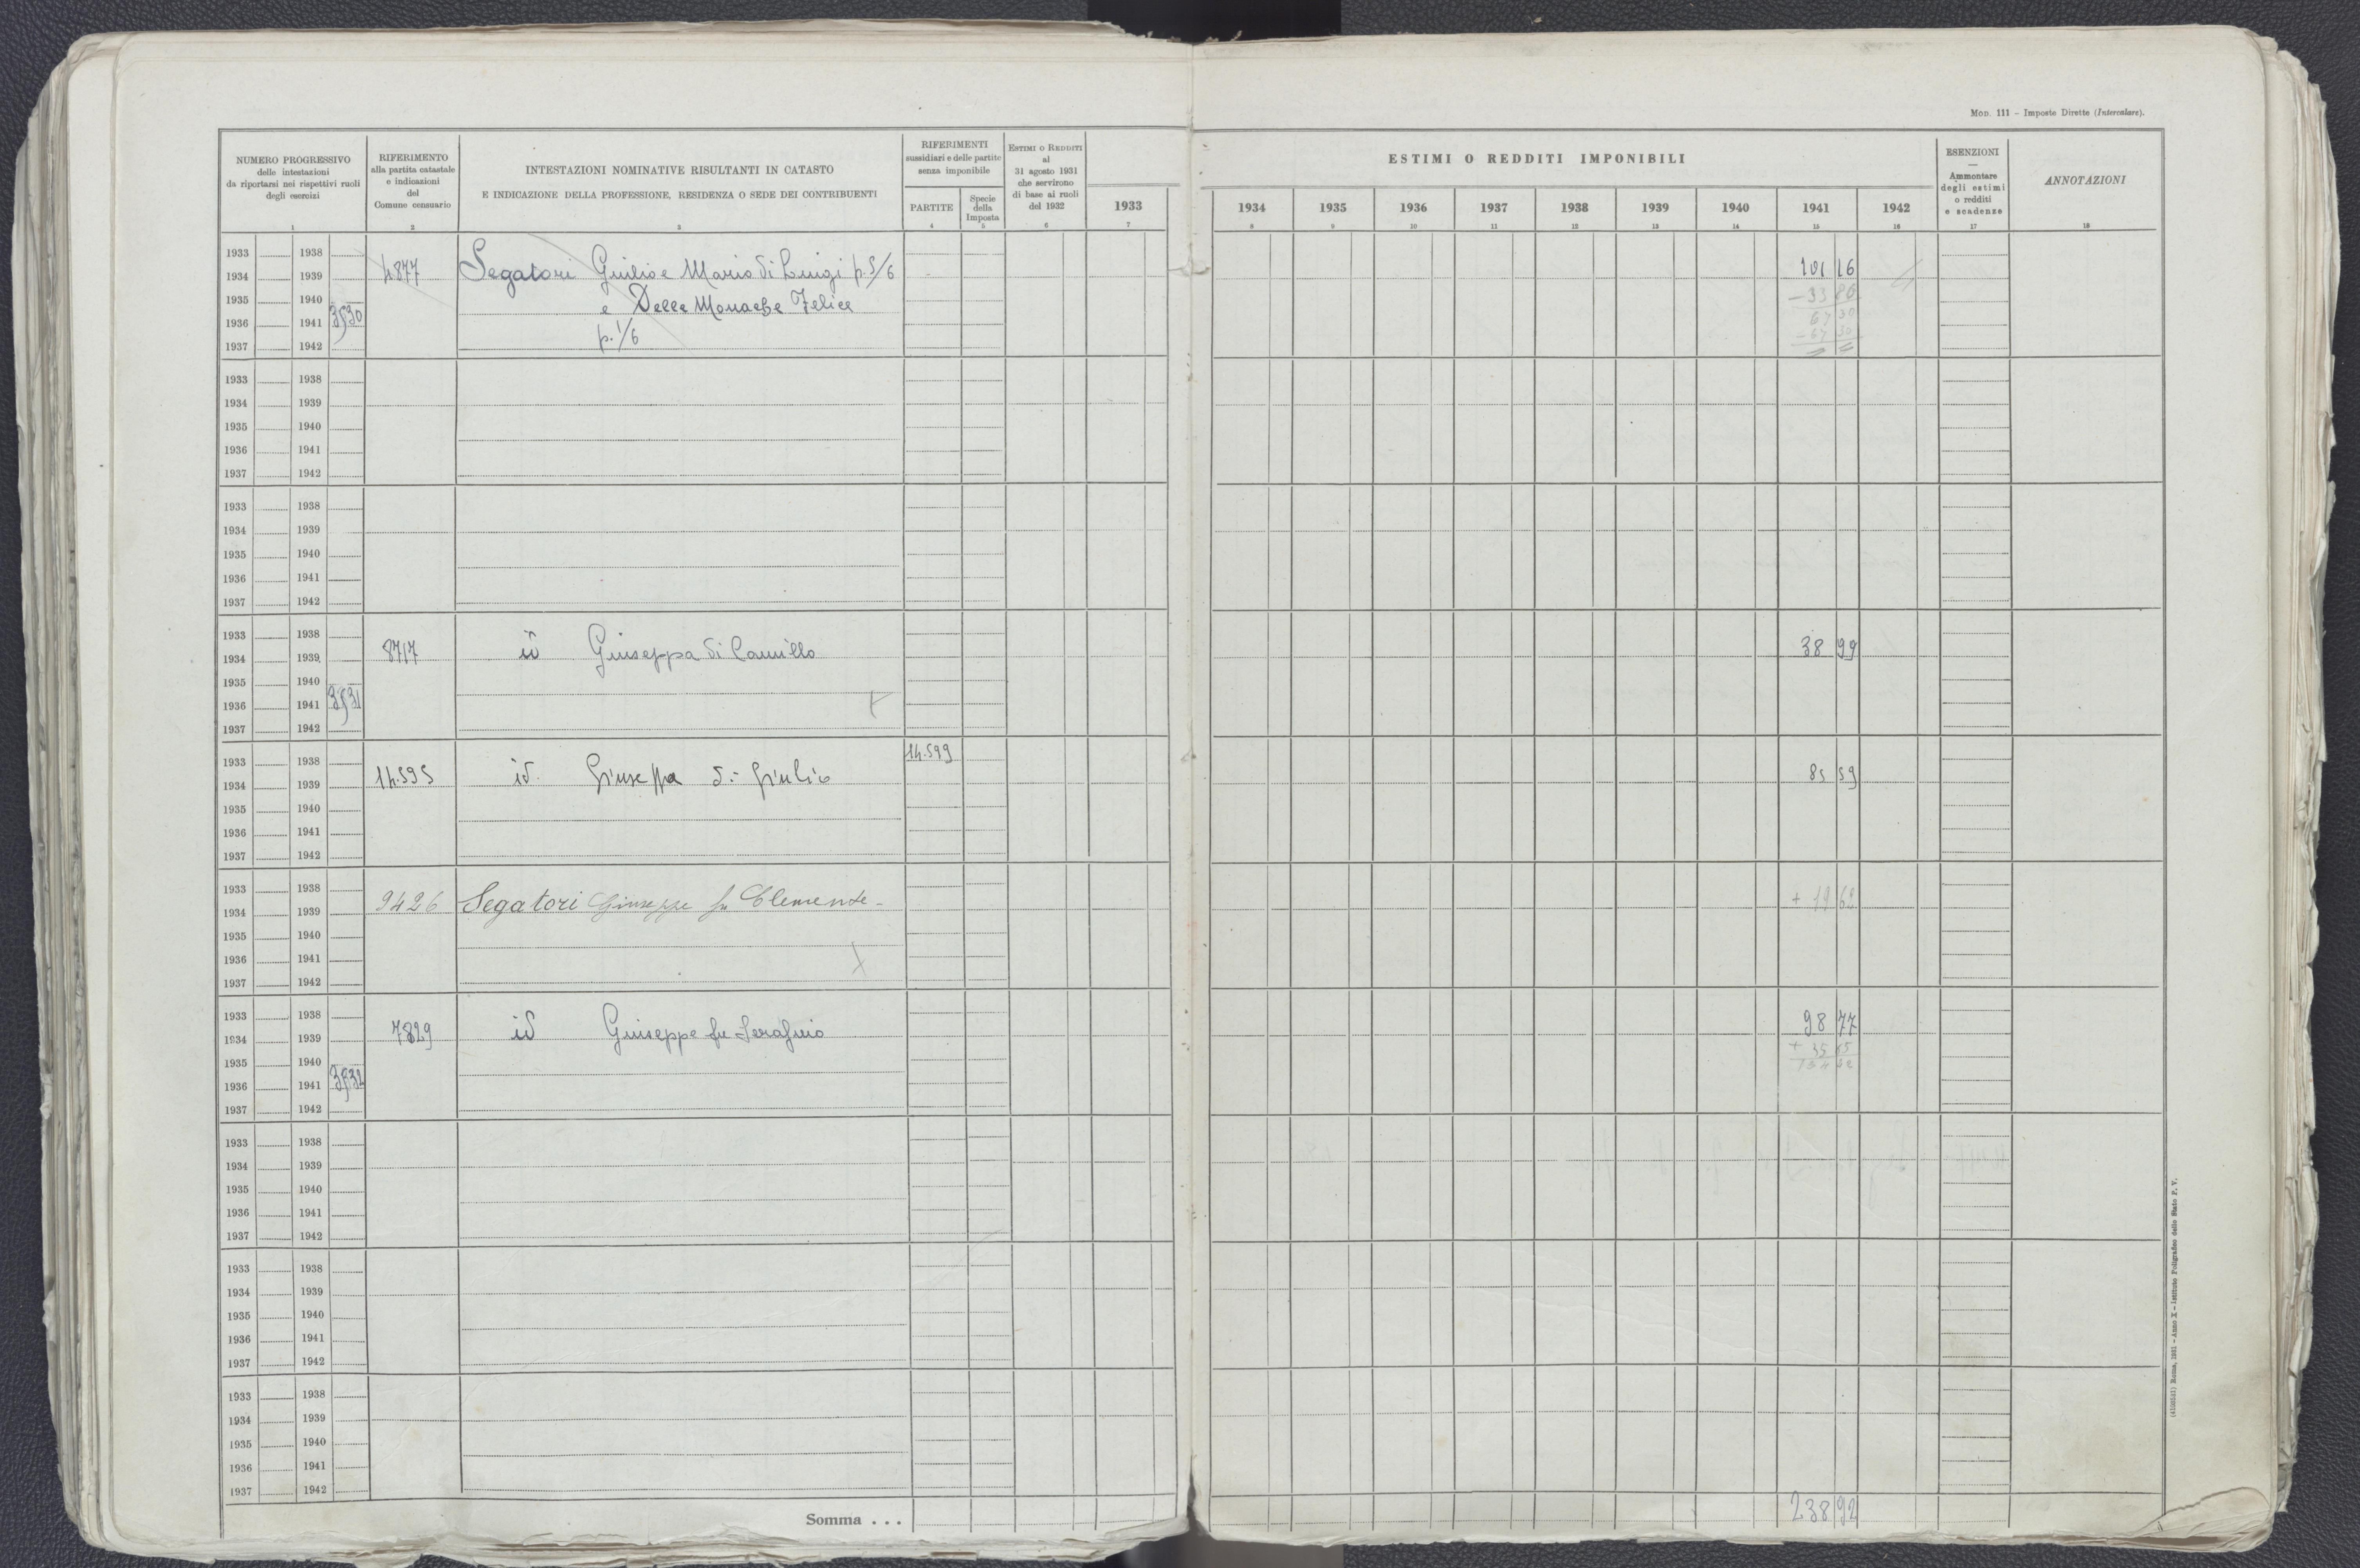 Mod. 111 – Imposte Dirette (Intercalare).
NUMERO PROGRESSIVO
delle intestazioni
da riportarsi nei rispettivi ruoli
degli esercizi
1
RIFERIMENTO
alla partita catastale
e indicazioni
del
Comune censuario
2
INTESTAZIONI NOMINATIVE RISULTANTI IN CATASTO
E INDICAZIONE DELLA PROFESSIONE, RESIDENZA O SEDE DEI CONTRIBUENTI
3
RIFERIMENTI
sussidiari e delle partite
senza imponibile
PARTITE
4
Specie
della
Imposta
5
Estimi o Redditi
al
31 agosto 1931
che servirono
di base ai ruoli
del 1932
6
1933
7
ESTIMI O REDDITI IMPONIBILI
1934 1935 1936 1937 1938 1939 1940 1941 1942
8 9 10 11 12 13 14 15 16
ESENZIONI
—
Ammontare
degli estimi
o redditi
e scadenze
17
ANNOTAZIONI
18
1933 1938
1934 1939 4877 Segatori Giulio e Mario di Luigi p. 5/6 101 16
1935 1940 e Delle Monache Felice – 33 86
1936 1941 3530 67 30
1937 1942 p. 1/6 – 67 30
1933 1938
1934 1939
1935 1940
1936 1941
1937 1942
1933 1938
1934 1939
1935 1940
1936 1941
1937 1942
1933 1938
1934 1939 8717 id Giuseppa di Camillo 38 99
1935 1940
1936 1941 3531
1937 1942
1933 1938 14.599
1934 1939 14.595 id. Giuseppa di Giulio 85 59
1935 1940
1936 1941
1937 1942
1933 1938
1934 1939 9426 Segatori Giuseppe fu Clemente -
1935 1940
1936 1941
1937 1942
1933 1938
1934 1939 7829 id Giuseppe fu Serafino 98 77
1935 1940 + 35 65
1936 1941 3532
1937 1942
1933 1938
1934 1939
1935 1940
1936 1941
1937 1942
1933 1938
1934 1939
1935 1940
1936 1941
1937 1942
1933 1938
1934 1939
1935 1940
1936 1941
1937 1942
Somma . . . 238 92
Roma, 1931 – Anno X – Istituto Poligrafico dello Stato P. V.